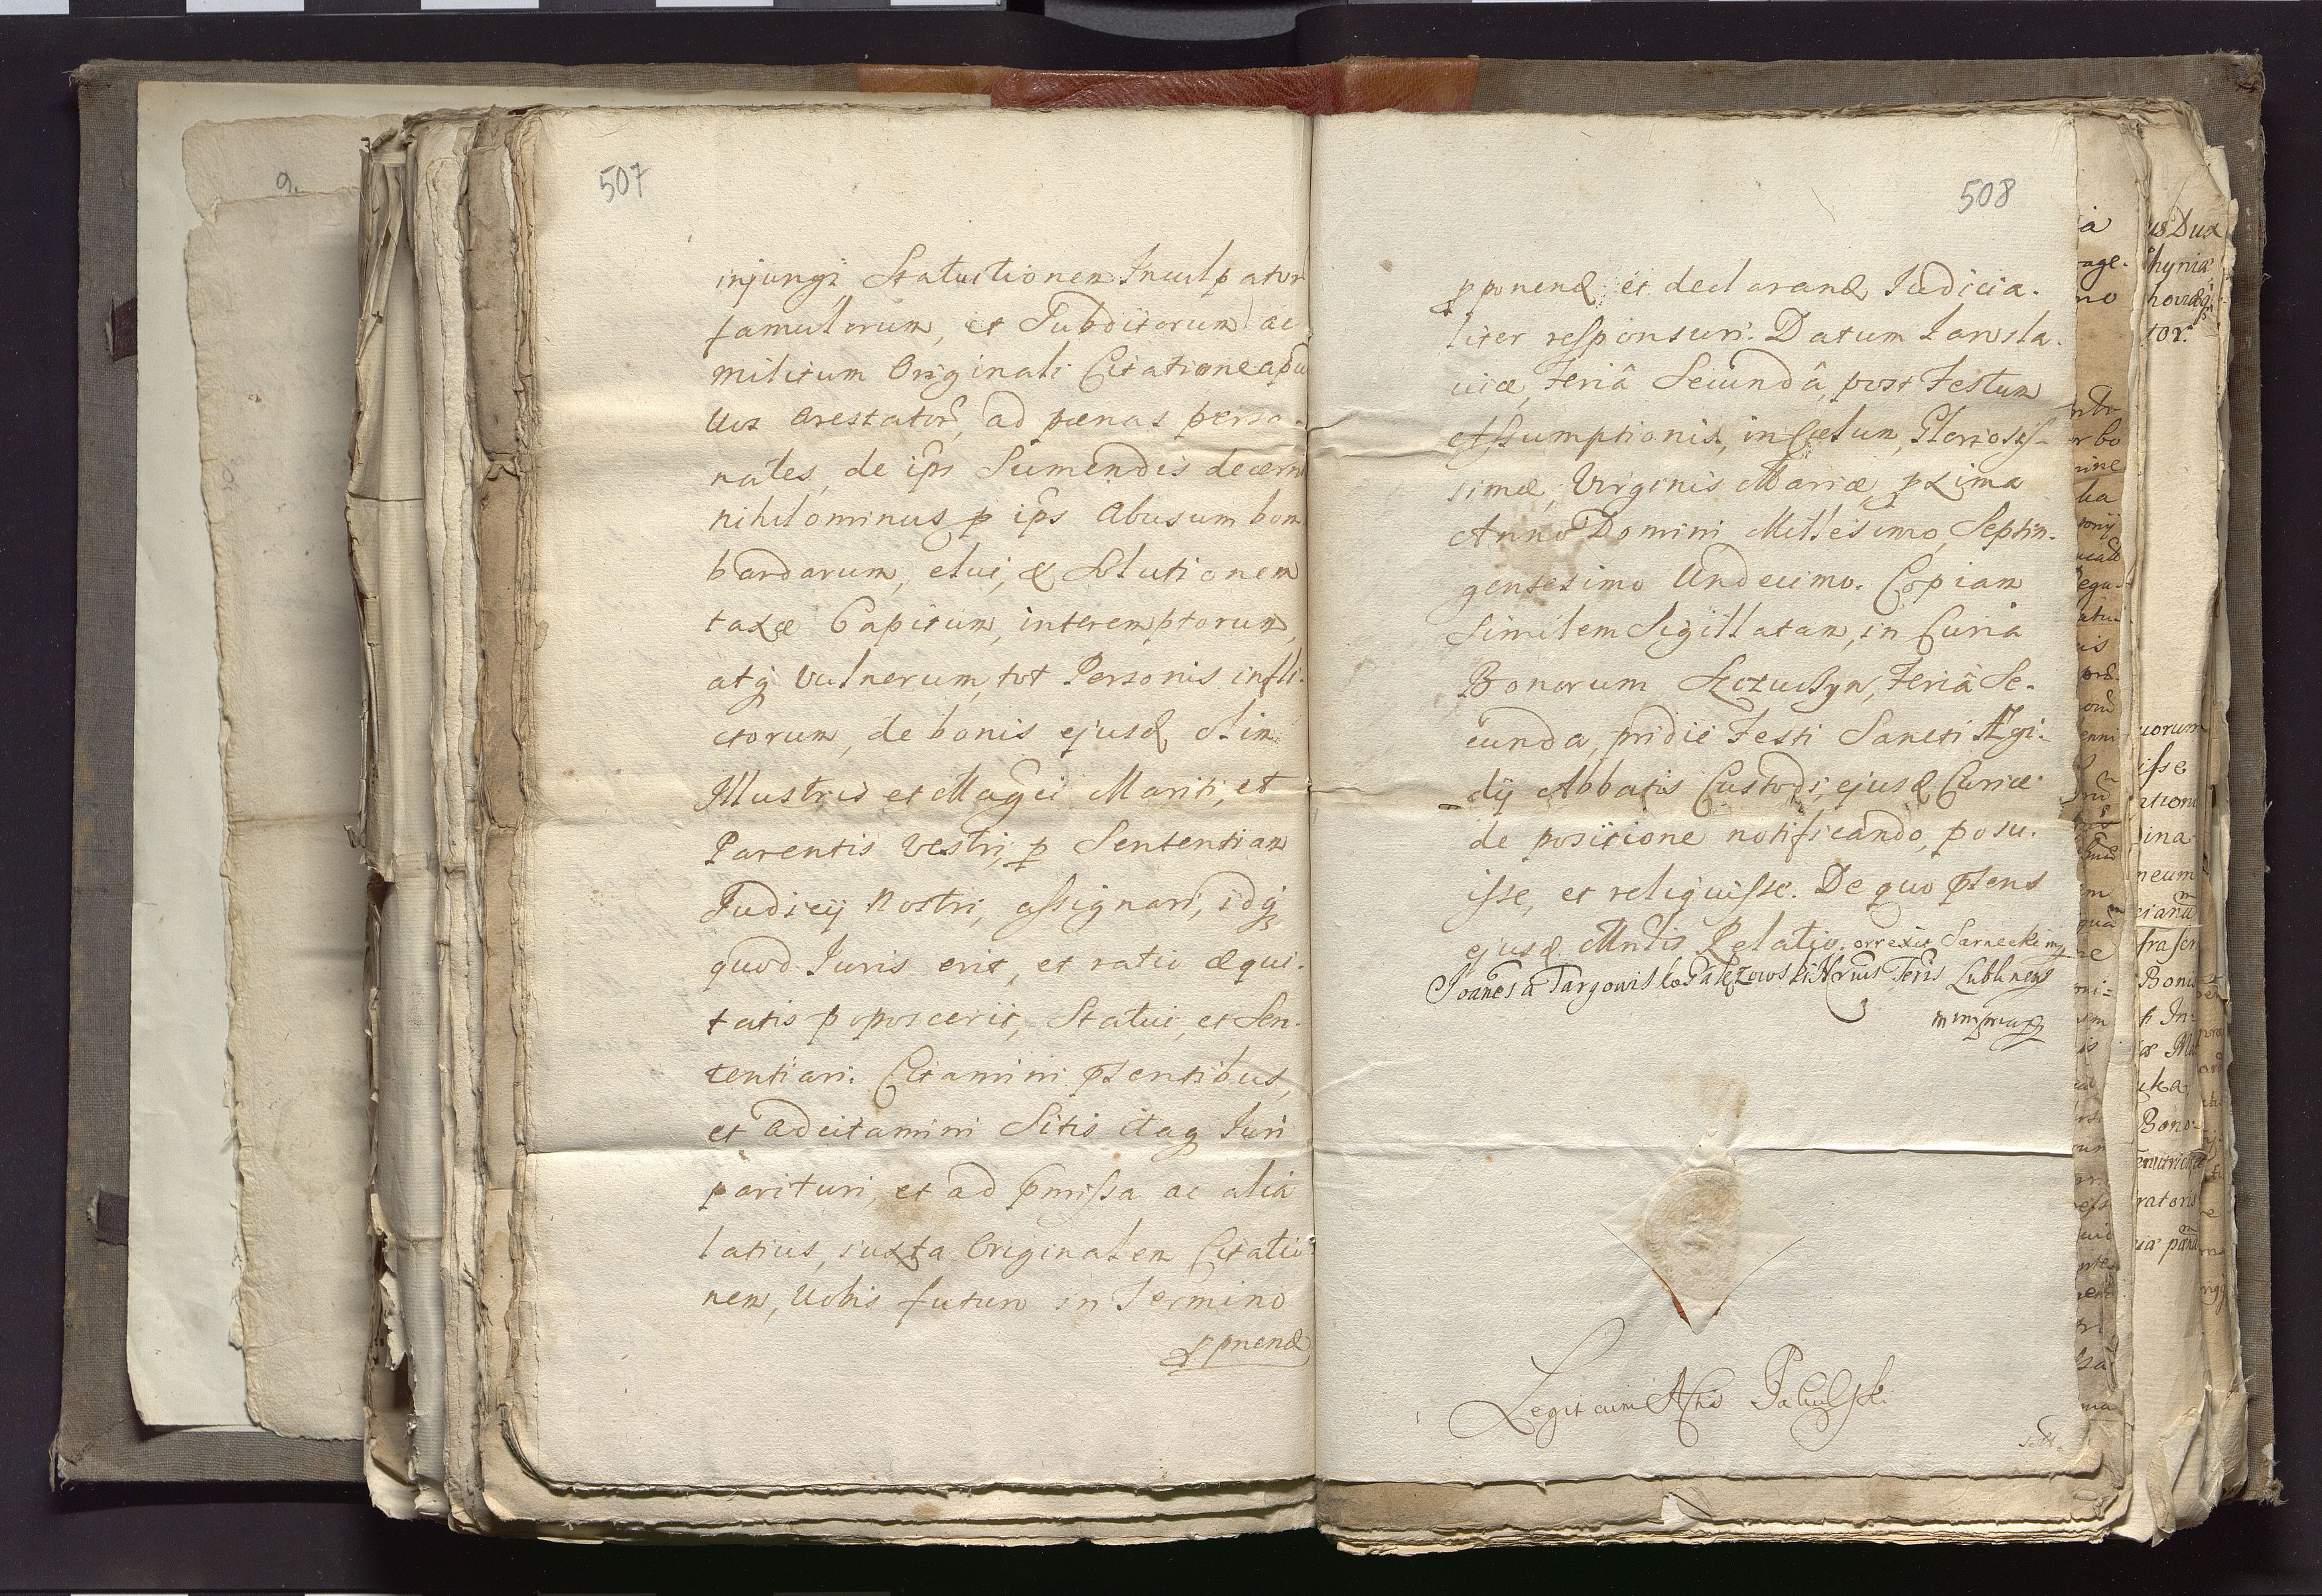 507
injungi, Statuitionem Inculpator
famulorum, et Subditorum ac
militum Originali Citatione apu
Vos arestator, ad pœnas perso-
nales, de ips Sumendis decern
nihilominus p ips Abusum bom
bardarum, elui, & Solutionem
taxæ Capitum, interemptorum,
atq vulnerum, tot Personis infli-
ctorum, de bonis ejusd olim
Illustris et Magci Mariti, et
Parentis vestri, p Sententiam
Judicij Nostri, assignari, idq
quod Juris erit, et ratio æqui-
tatis poposcerit, Statui, et Sen-
tentiari. Citamini pntentibus,
et adcitamini Sitis itaq Juri
parituri, et ad pmissa ac alia
latius, juxta Originalem Citatio-
nem, Vobis futuro in Termino
pponend
508
pponend et declarand Judicia-
liter responsuri. Datum Jarosla-
viæ, Feriâ Secundâ, post Festum
Assumptionis, in Cœlum, Gloriosis-
simæ, Virginis Mariæ, pxima
Anno Domini Millesimo, Septin-
gentesimo Undecimo. Copiam
Similem Sigillatam, in Curia
Bonorum, Feriâ Se-
cunda, pridie Festi Sancti Ægi-
dij Abbatis Custodi, ejusd Curiæ
de positione notificando, posu-
isse, et reliquisse. De quo pntens
ejusd Mntis Relatio. Correxit Sarnecki mp
Joanes a Targowisko Nrius Tris Lublinens
mmppria
Legit cum Actis